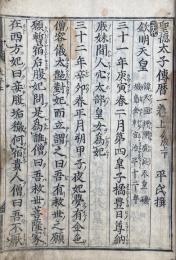 聖德太子傳曆一卷上
平氏撰
欽明天皇
三十一年庚寅春二月第四皇子橘豊日尊納
庶妹間人穴太部皇女為妃
三十二年辛卯春正月朔甲子夜妃夢有金色
僧容儀太艶對妃而立謂之曰吾有救世之願
願暫宿后腹妃問是為誰僧曰吾救世菩薩家
在西方妃曰妾腹垢穢何宿貴人僧曰吾不厭